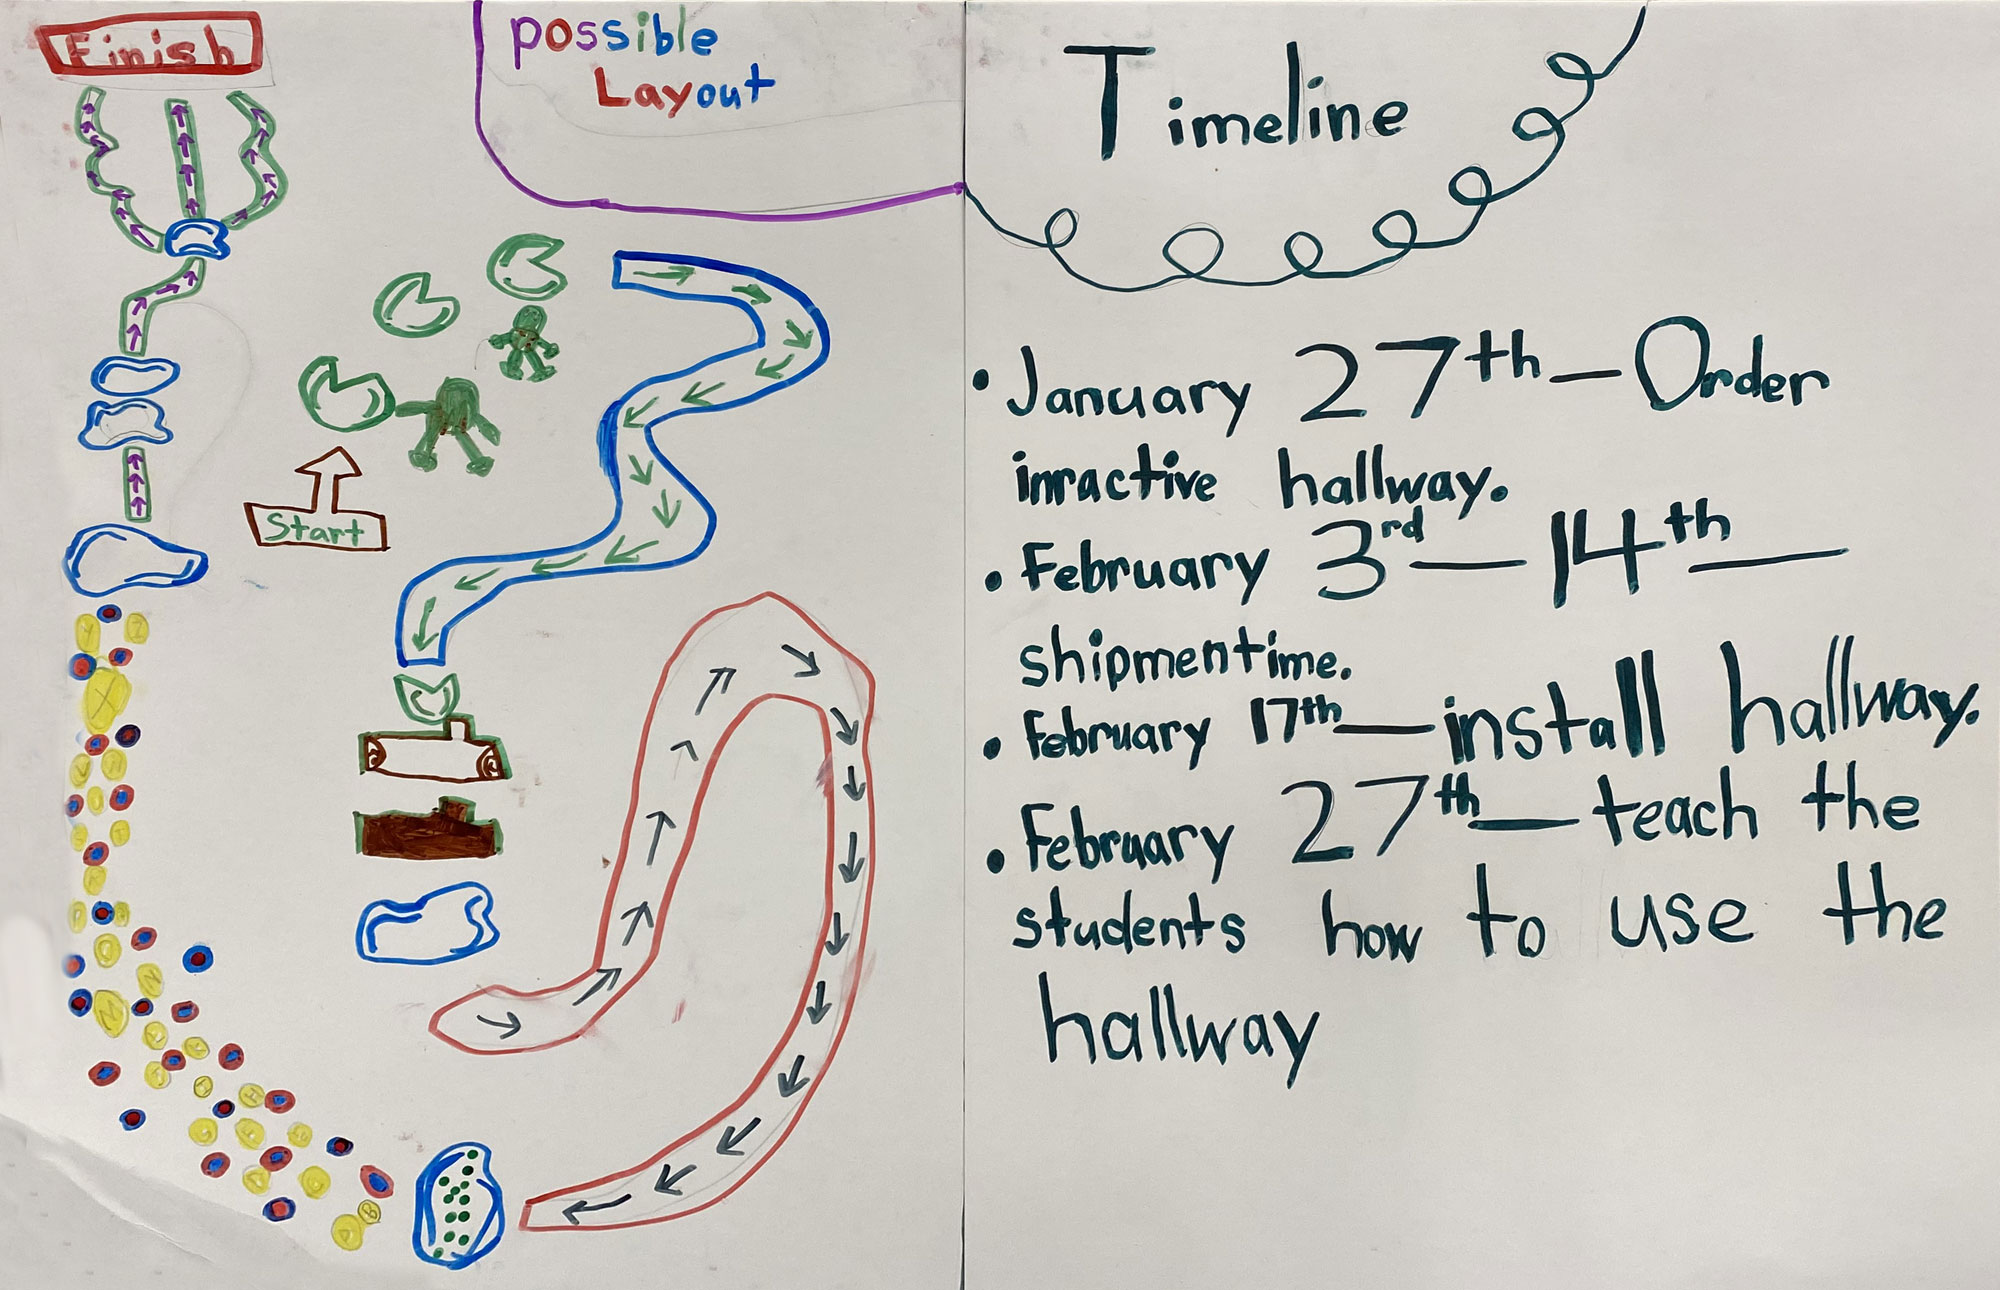 Finish
possible
Layout
Start
Timeline
• January 27th — Order
inractive hallway.
• February 3rd — 14th —
shipmentime.
• February 17th — install hallway.
• February 27th — teach the
students how to use the
hallway